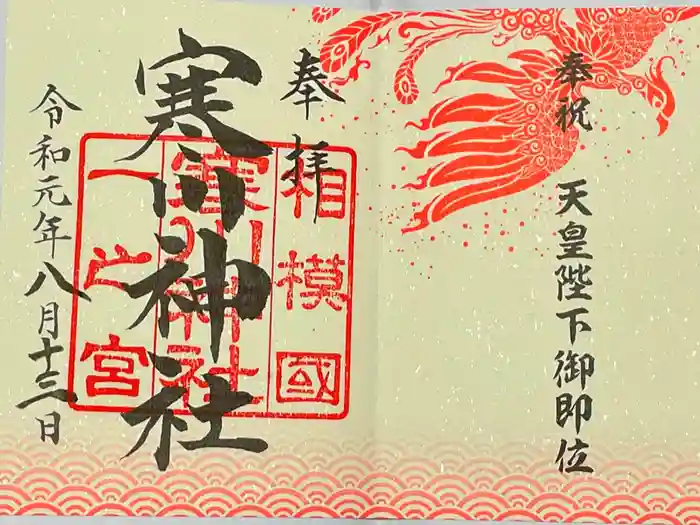 奉祝 天皇陛下御即位
奉拝
寒川神社
相模國
寒川神社
一之宮
令和元年八月十三日